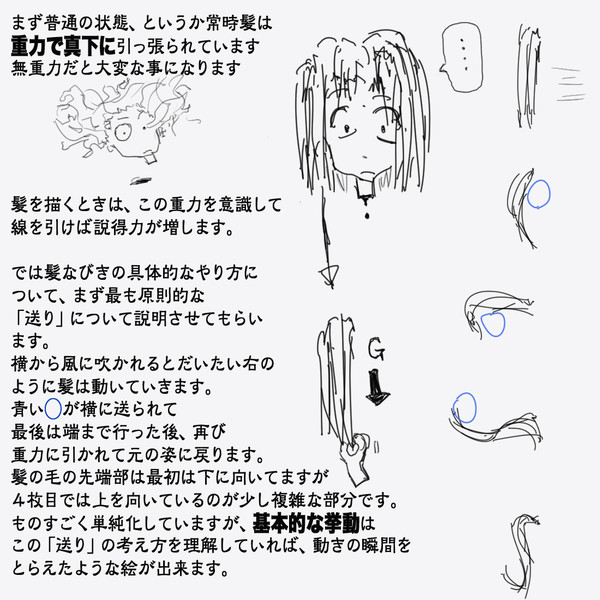 まず普通の状態、というか常時髪は
重力で真下に引っ張られています
無重力だと大変な事になります
髪を描くときは、この重力を意識して
線を引けば説得力が増します。
では髪なびきの具体的なやり方に
ついて、まず最も原則的な
「送り」について説明させてもらい
ます。
横から風に吹かれるとだいたい右の
ように髪は動いていきます。
青い◯が横に送られて
最後は端まで行った後、再び
重力に引かれて元の姿に戻ります。
髪の毛の先端部は最初は下に向いてますが
４枚目では上を向いているのが少し複雑な部分です。
ものすごく単純化していますが、基本的な挙動は
この「送り」の考え方を理解していれば、動きの瞬間を
とらえたような絵が出来ます。
‥‥
G